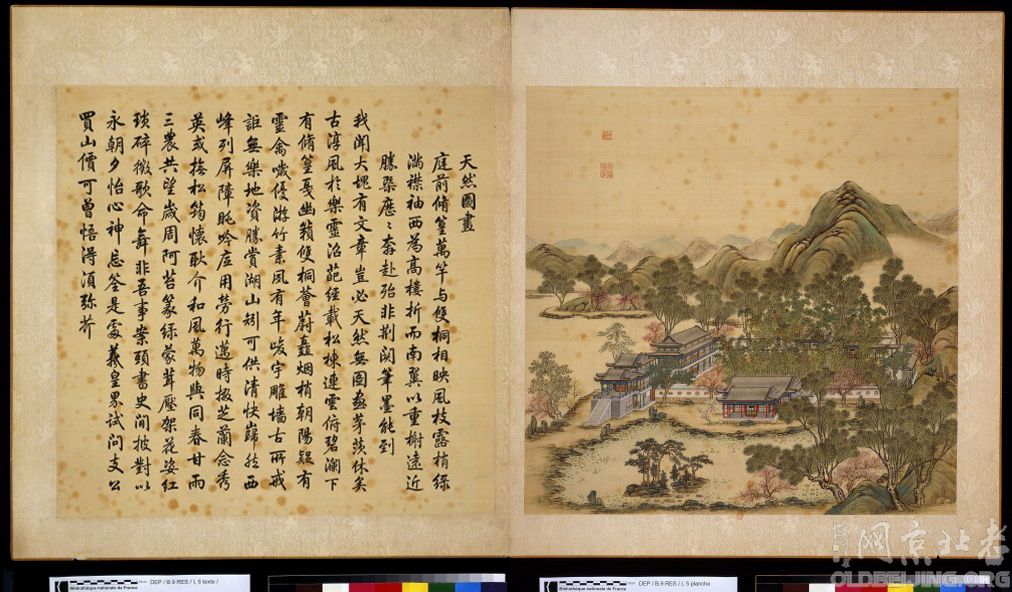 天然圖畫
庭前脩篁萬竿与雙桐相映風枝露梢綠
滿襟袖西為高樓折而南翼以重榭遠近
勝槩歷〻奔赴殆非荆關筆墨能到
我聞大塊有文章豈必天然無圖畫茅茨休矣
古淳風於樂靈沼葩經載松棟連雲俯碧瀾下
有脩篁戛幽籟雙桐薈蔚矗烟梢朝陽疑有
靈禽噦優游竹素夙有年峻宇雕墻古所戒
詎無樂地資勝賞湖山矧可供清快巋然西
峰列屏障眺吟底用勞行邁時掇芝蘭念秀
英或撫松筠懷耿介和風萬物與同春甘雨
三農共望歲周阿苔篆綠蒙茸壓架花姿紅
瑣碎徵歌命舞非吾事案頭書史閒披對以
永朝夕怡心神忘筌是處羲皇界試問支公
買山價可曾悟得須弥芥
DEP / B.9 RES / I, 5 texte /
Bibliothèque nationale de France
DEP / B.9 RES / I, 5 planche
Bibliothèque nationale de France
老北京网
OLDBEIJING.ORG